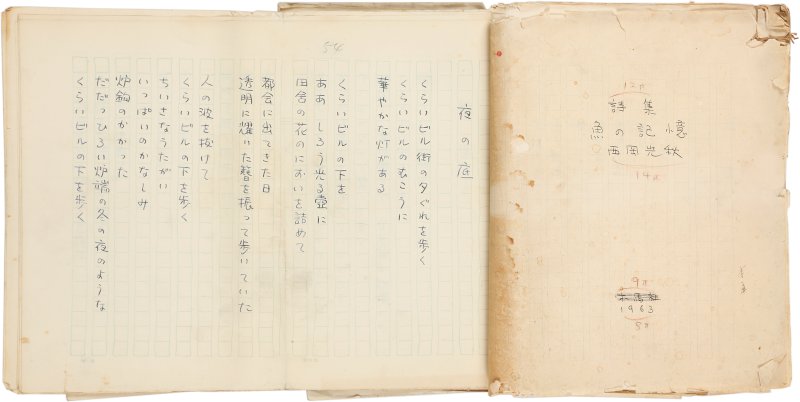 12ポ
詩集
魚の記憶
西岡光秋
14ポ
9ポ
1963
8ポ
54
夜の底
くらいビル街の夕ぐれを歩く
くらいビルのむこうに
華やかな灯がある
くらいビルの下を
ああ しろう光る壷に
田舎の花のにおいを詰めて
都会に出てきた日
透明に耀いた簪を振って歩いていた
人の波を抜けて
くらいビルの下を歩く
ちいさなうたがい
いっぱいのかなしみ
炉鉤のかかった
だだっぴろい炉端の冬の夜のような
くらいビルの下を歩く